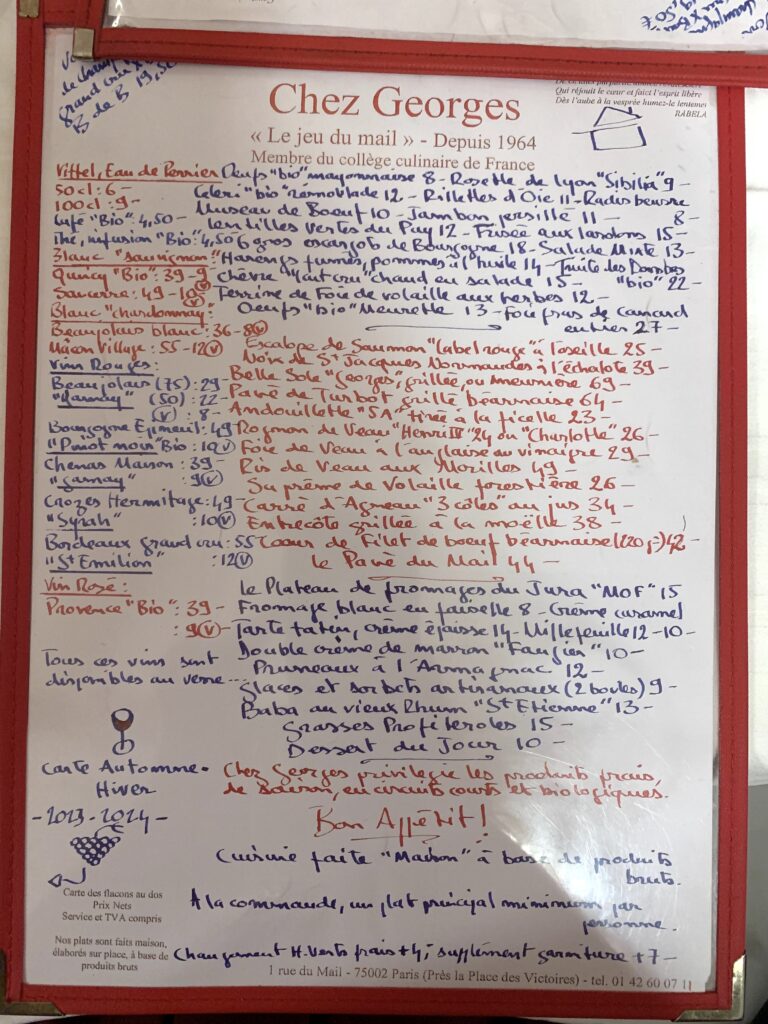 de Champ
grand cru
B de B 19,50
Chez Georges
« Le jeu du mail » - Depuis 1964
Membre du collège culinaire de France
Qui réjouit le cœur et faict l'esprit libère
Dès l'aube à la vesprée humez-le lentemen
RABELA
Vittel, Eau de Perrier
50 cl : 6 -
100 cl : 9 -
Café "Bio" : 4,50 -
Thé, infusion "Bio" : 4,50
Blanc "sauvignon" :
Quincy "Bio" : 39 - 9 (v)
Sancerre : 49 - 10 (v)
Blanc "chardonnay" :
Beaujolais blanc : 36 - 8 (v)
Mâcon Village : 55 - 12 (v)
Vin Rouges :
Beaujolais (75) : 29 -
"Gamay" (50) : 22 -
(v) : 8 -
Bourgogne Epineuil : 49
"Pinot noir" Bio : 10 (v)
Chenas Maison : 39 -
"gamay" : 9 (v)
Crozes Hermitage : 49 -
"Syrah" : 10 (v)
Bordeaux grand cru : 55
"St Emilion" : 12 (v)
Vin Rosé :
Provence "Bio" : 39 -
: 9 (v) -
Tous ces vins sont
disponibles au verre ...
Carte Automne -
Hiver
- 2023 - 2024 -
Carte des flacons au dos
Prix Nets
Service et TVA compris
Nos plats sont faits maison,
élaborés sur place, à base de
produits bruts
Oeufs "bio" mayonnaise 8 - Rosette de Lyon "Sibilia" 9 -
Céleri "bio" rémoulade 12 - Rillettes d'Oie 11 - Radis beurre
Museau de Boeuf 10 - Jambon persillé 11 - 8 -
Lentilles vertes du Puy 12 - Frisée aux lardons 15 -
6 gros escargots de Bourgogne 18 - Salade Mixte 13 -
Harengs fumés, pommes à l'huile 14 - Truite des Dombes
Chèvre "lait cru" chaud en salade 15 - "bio" 22 -
Terrine de Foie de volaille aux herbes 12 -
Oeufs "bio" Meurette 13 - Foie gras de canard
entier 27 -
Escalope de Saumon "Label rouge" à l'oseille 25 -
Noix de St Jacques Normandes à l'échalote 39 -
Belle Sole "Georges", grillée, ou meunière 69 -
Pavé de Turbot grillé béarnaise 64 -
Andouillette "5A" tirée à la ficelle 23 -
Rognon de Veau "Henri IV" 24 ou "Charlotte" 26 -
Foie de Veau à l'anglaise ou vinaigre 29 -
Ris de Veau aux Morilles 49 -
Suprême de Volaille forestière 26 -
Carré d'Agneau "3 côtes" au jus 34 -
Entrecôte grillée à la moëlle 38 -
Coeur de Filet de boeuf béarnaise 42 -
Le Pavé du Mail 44 -
Le Plateau de fromages du Jura "MOF" 15
Fromage blanc en faiselle 8 - Crème caramel
Tarte tatin, crème épaisse 14 - Millefeuille 12 - 10 -
Double crème de marron "Faugier" 10 -
Pruneaux à l'Armagnac 12 -
Glaces et sorbets artisanaux (2 boules) 9 -
Baba au vieux Rhum "St Etienne" 13 -
Grasses Profiteroles 15 -
Dessert du Jour 10 -
Chez Georges privilégie les produits frais,
de Saison, en circuits courts et biologiques.
Bon Appétit !
Cuisine faite "Maison" à base de produits
bruts.
A la commande, un plat principal minimum par
personne.
Changement H. Verts frais + 4,- supplément garniture + 7 -
1 rue du Mail - 75002 Paris (Près la Place des Victoires) - tel. 01 42 60 07 11